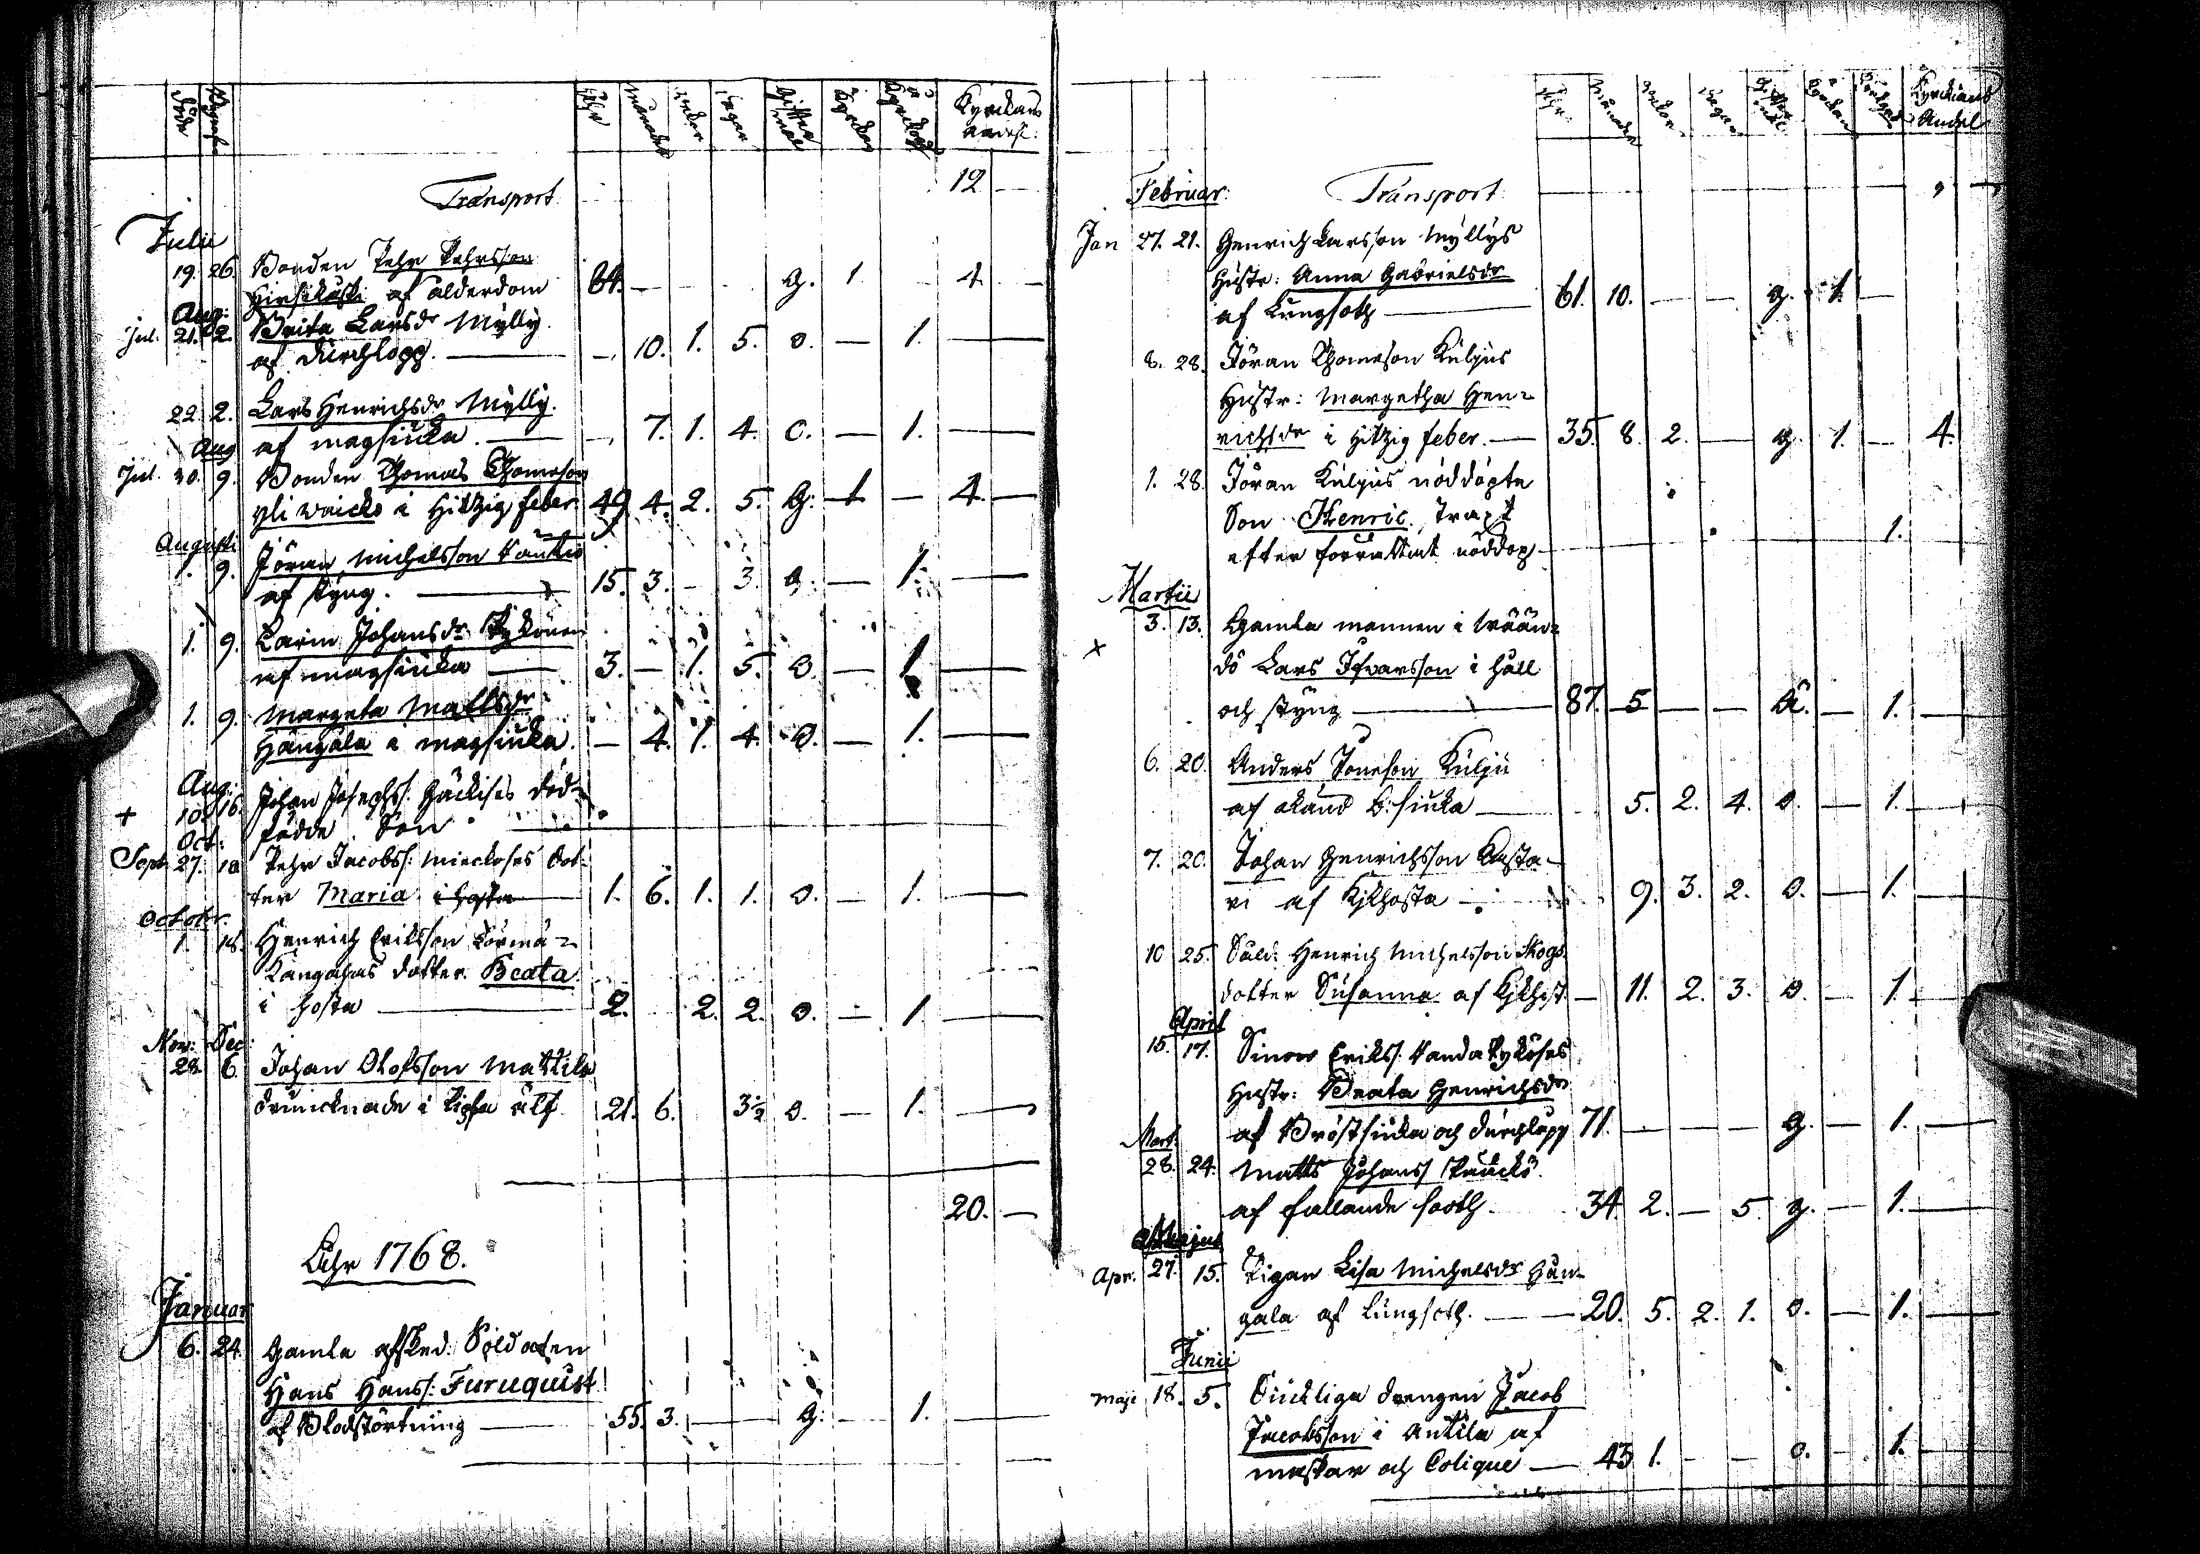 Döde Begrafne Åhr Månader Wekor Dagar Giftermål Kyrckan Kyrckogd Kyrckians Andel
Transport 12 —
Julii
19. 26. Bonden Pehr Pehrsson
Hirsikåski af ålderdom 64. — g. 1 4. —
Aug:
Jul. 21. 2. Brita Larsdr Mylly.
af durchlopp. — 10. 1. 5. o. — 1. —
22. 2. Lars Henrichsdr Mylly.
af magsiuka. — 7. 1. 4. o. — 1. —
Aug
Jul. 30. 9. Bonden Thomas Thomasson
yli waicko i Hitzig feber 49 4. 2. 5. g. 1 — 4. —
Augusti
1. 9. Jöran Michelsson
af styng. — 15. 3. — 3. o. — 1. —
1. 9. Carin Johansdr
af magsiuka — 3. — 1. 5. o. — 1. —
1. 9. Margeta Mattsdr
Hangala i magsiuka. — 4. 1. 4. o. — 1. —
Aug:
+ 10. 16. Johan Josephs: död=
födde Son
Oct:
Sept 27. 18 Pehr Jacobss: dot-
ter Maria i hosta 1. 6. 1. 1. o. — 1. —
Octobr.
1. 18. Henrich Eriksson Kormu=
Kangahas dotter Beata
i hosta — 2. 2. 2. o. — 1. —
Nov: Dec:
28. 6. Johan Olofsson Mattila
druncknade i älf 21. 6. 3½ o. — 1. —
20. —
Åhr 1768.
Januar
6. 24. Gamla afsked: Soldaten
Hans Hanss: Furuquist
af Blodstörtning — 55. 3. — g. — 1. —
Åhr Månader Wekor Dagar Gifter mål Kyrckan Kyrkogd Kyrckians Andel
Februar. Transport
Jan 27. 21. Henrich Larsson Myllys
Hustr: Anna Gabrielsdr
af Lungsoth — 61. 10. — — g. 1. —
8. 28. Jöran Thomasson Kuljus
Hustr: Margetha Hen=
richsdr i Hitzig feber. — 35. 8. 2. — g. 1. — 4.
1. 28. Jöran Kuljus nöddöpte
Son Henric,
efter förrättat nöddop — 1.
Martii
3. 13. Gamla mannen i
+ Lars Ifvarsson i håll
och styng — 87. 5 — — — 1. —
6. 20. Anders Kulju
af okänd B: siuka — 5. 2. 4. o. — 1. —
7. 20. Johan Henrichsson
af Kikhosta — 9. 3. 2. o. — 1.
10 25. Sold: Henrich Michelsson Skogs
dotter Susanna af Kikhost — 11. 2. 3. o. — 1. —
April
15. 17. Simon Erikss:
Hustr: Beata Henrichsdr
af Bröstsiuka och durchlopp 71. — — — g. — 1. —
Mart.
28. 24. Matts Johanss
af fallande soth. 34. 2. — 5. g. — 1. —
Majus
Apr. 27. 15. Pigan Lisa Michelsdr Han-
gala af lungsoth. — 20. 5. 2. 1. o. — 1. —
Junii
Maji 18. 5. drengen Jacob
Jacobsson i Antila af
maskar och Colique — 43 1. — — o. — 1. —